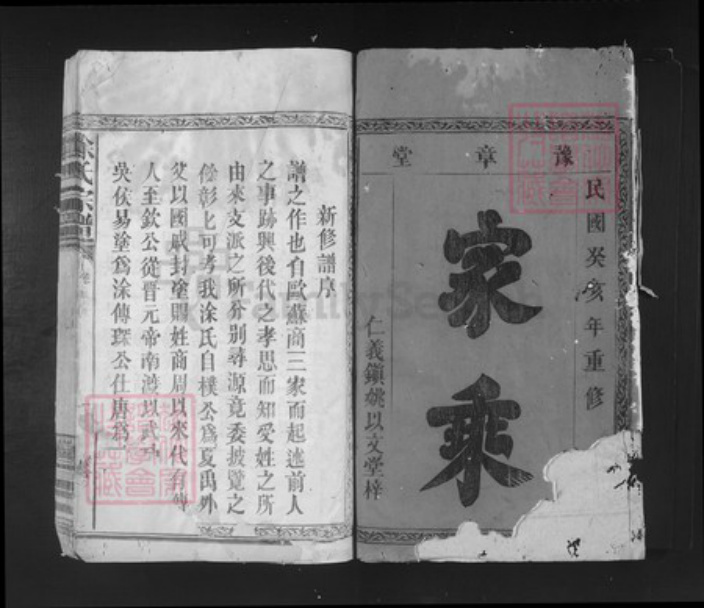 豫章堂
民國癸亥年重修
家乘
仁義鎮姚以文堂梓
新修譜序
譜之作也自歐蘇商三家而起述前人
之事跡興後代之孝思而知受姓之所
由來支派之所分別尋源竟委披覽之
餘彰彰可考我涂氏自樸公爲夏禹外
父以國戚封塗賜姓商周以來代有傳
人至欽公從晉元帝南渡以武功
吳侯易塗爲涂傳琛公仕唐爲
涂氏宗譜